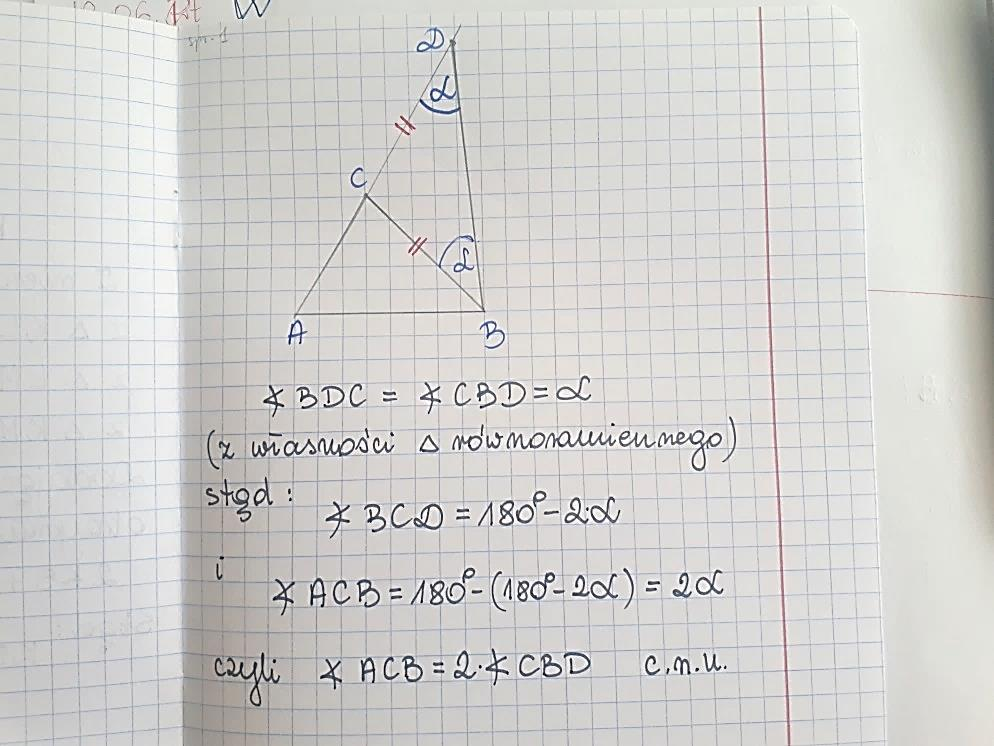 D
α
C
α
A
B
∡ BDC = ∡ CBD = α
(z własności △ równoramiennego)
stąd :
∡ BCD = 180° - 2·α
i
∡ ACB = 180° - (180° - 2α) = 2α
czyli ∡ ACB = 2·∡ CBD c.n.u.